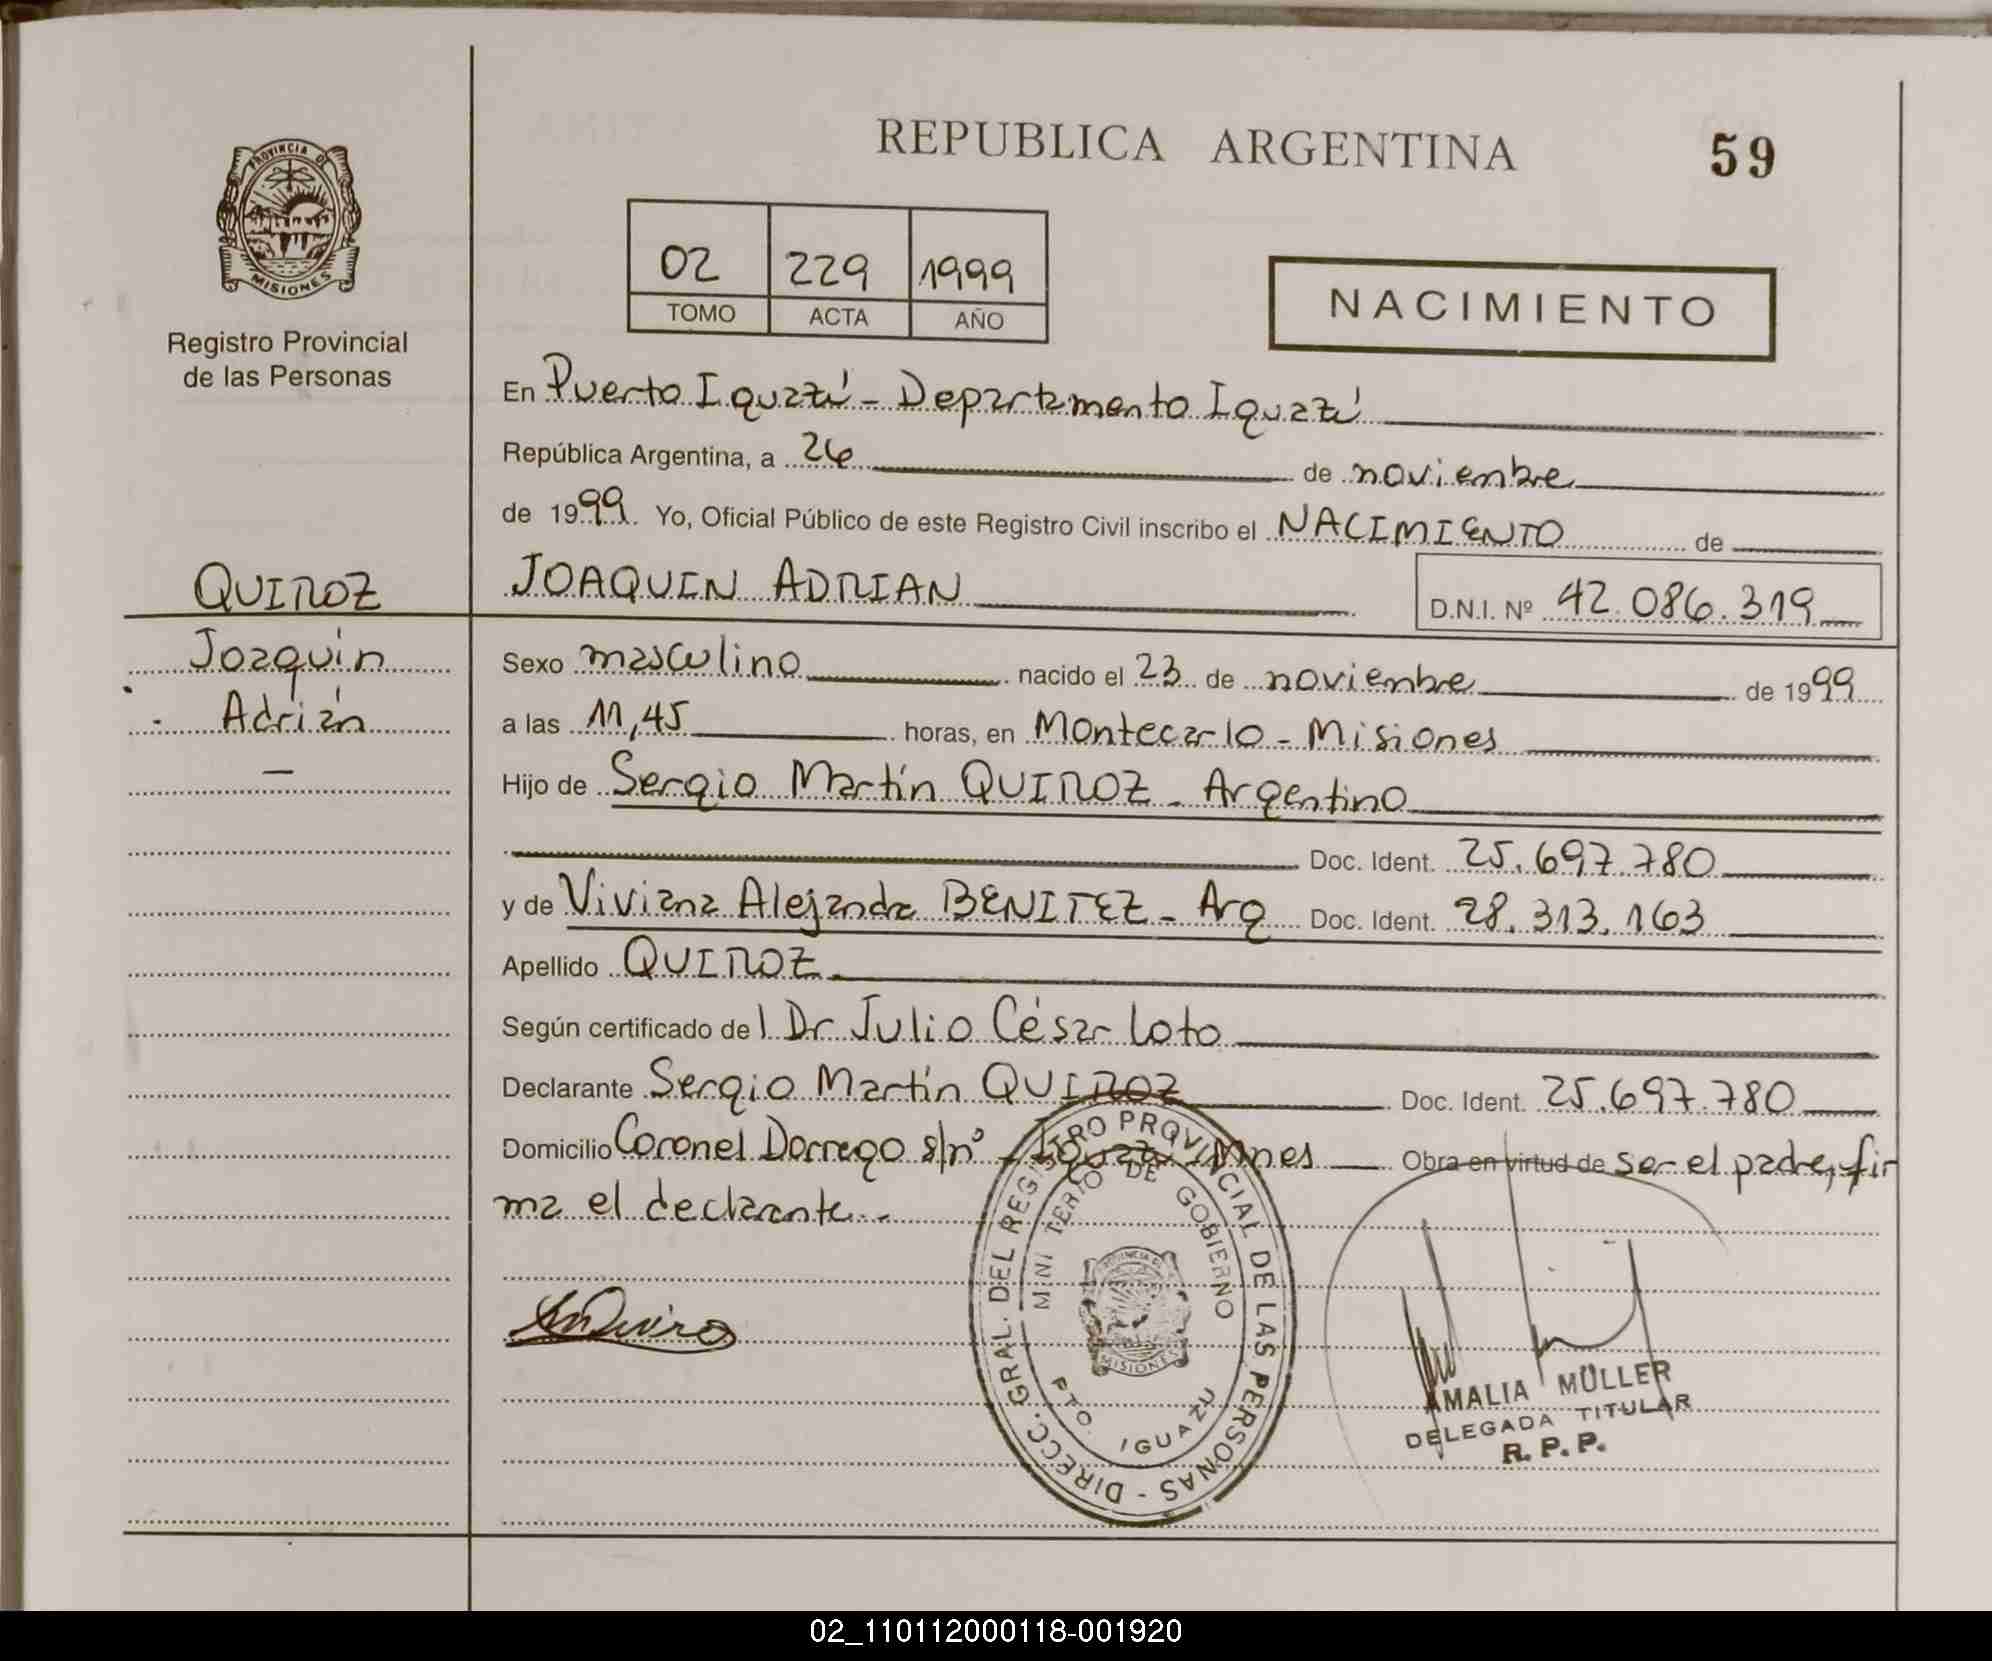 REPUBLICA ARGENTINA
59
PROVINCIA DE
MISIONES
Registro Provincial
de las Personas
02 229 1999
TOMO ACTA AÑO
NACIMIENTO
En Puerto Iguazú - Departamento Iguazú
República Argentina, a 26 de noviembre
de 1999 Yo, Oficial Público de este Registro Civil inscribo el NACIMIENTO de
QUIROZ
JOAQUIN ADRIAN
D.N.I. Nº 42.086.319
Joaquín
Adrián
—
Sexo masculino nacido el 23 de noviembre de 1999
a las 11,45 horas, en Montecarlo - Misiones
Hijo de Sergio Martín QUIROZ - Argentino
Doc. Ident. 25.697.780
y de Viviana Alejandra BENITEZ - Arg Doc. Ident. 28.313.163
Apellido QUIROZ
Según certificado del Dr Julio César Loto
Declarante Sergio Martín QUIROZ Doc. Ident. 25.697.780
Domicilio Coronel Dorrego s/nº - Iguazú - Mnes Obra en virtud de ser el padre, fir
ma el declarante.-
DIRECC. GRAL. DEL REGISTRO PROVINCIAL DE LAS PERSONAS -
MINISTERIO DE GOBIERNO
PROVINCIA DE
MISIONES
PTO. IGUAZU
AMALIA MÜLLER
DELEGADA TITULAR
R. P. P.
02_110112000118-001920